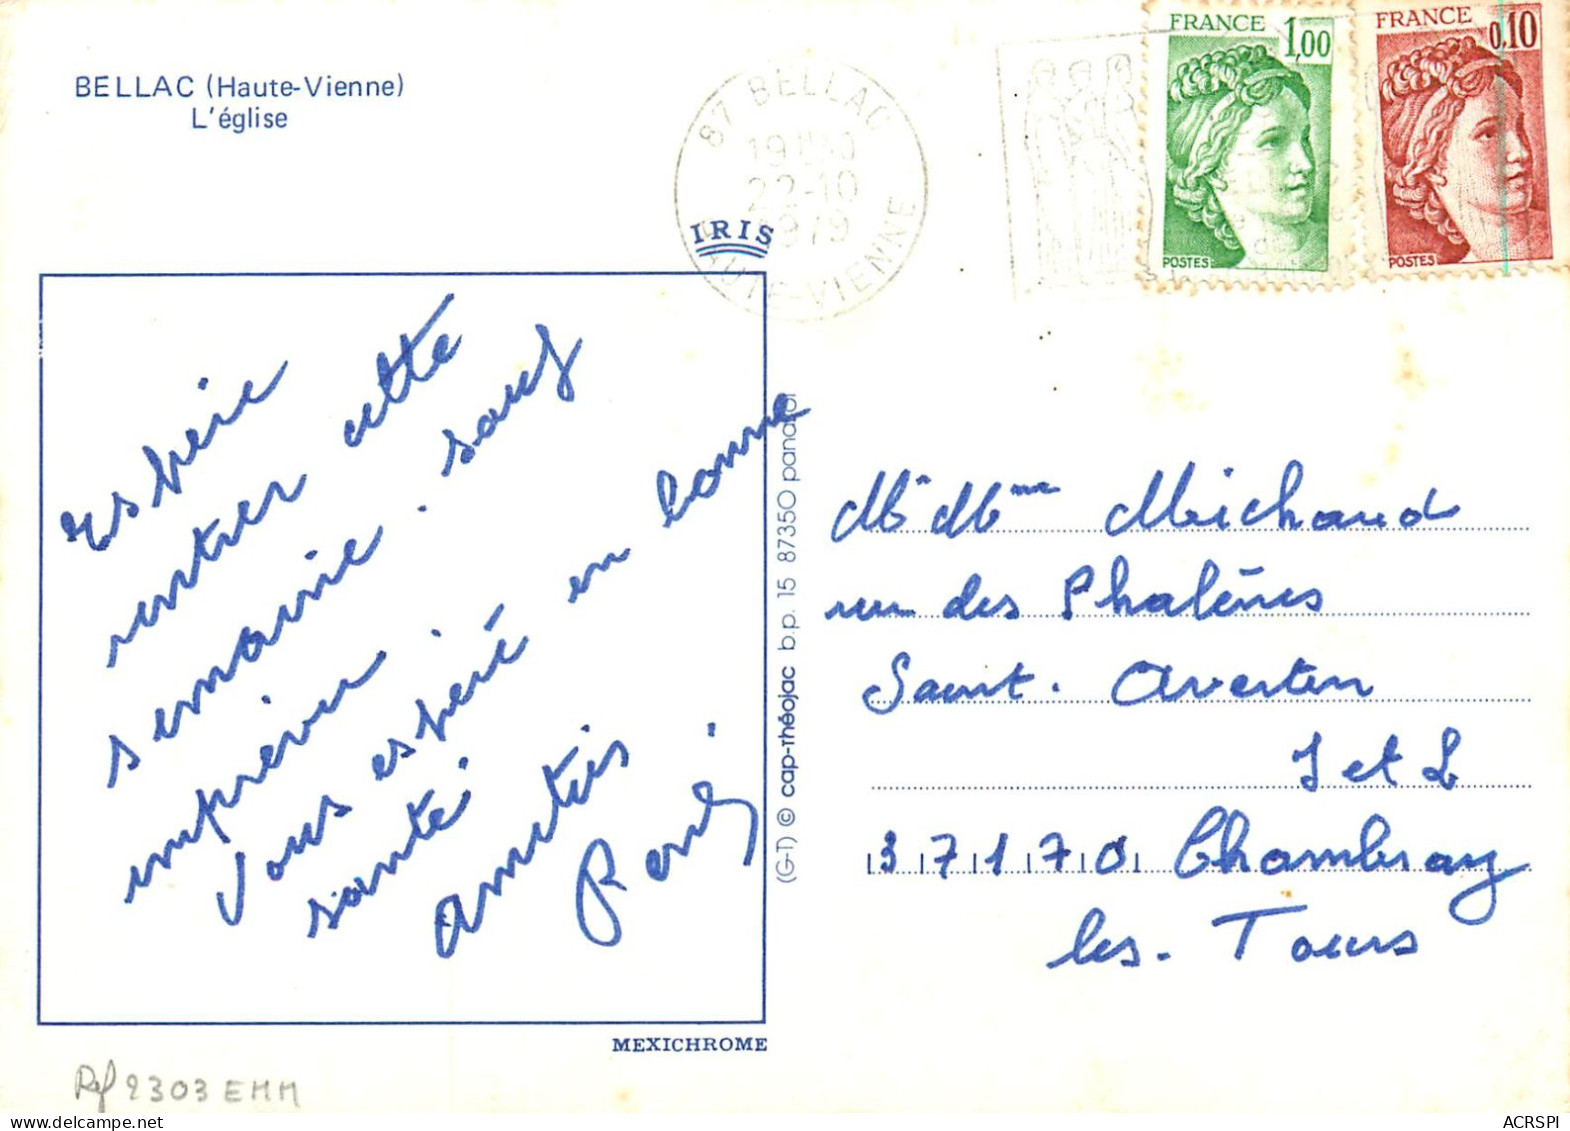 BELLAC (Haute-Vienne)
L'église
87 BELLAC
22-10
1979
HAUTE-VIENNE
FRANCE
1,00
POSTES
FRANCE
0,10
POSTES
IRIS
Espère
rentrer cette
semaine. sauf
imprévu.
Vous espère en bonne
santé.
amitiés
René
(G-T) © cap-théojac b.p. 15 87350 panazol
Mr Mme Michaud
rue des Phalènes
Saint. Avertin
I et L
37170 Chambray
les. Tours
MEXICHROME
Ref 2303 EMM
ACRSPI